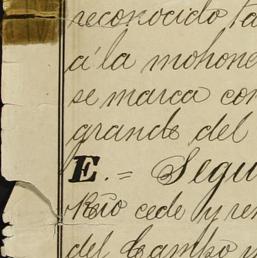 reconocido ta
á la mohone
se marca con
grande del
E. = Segu
Rio cede y ren
del Campo y